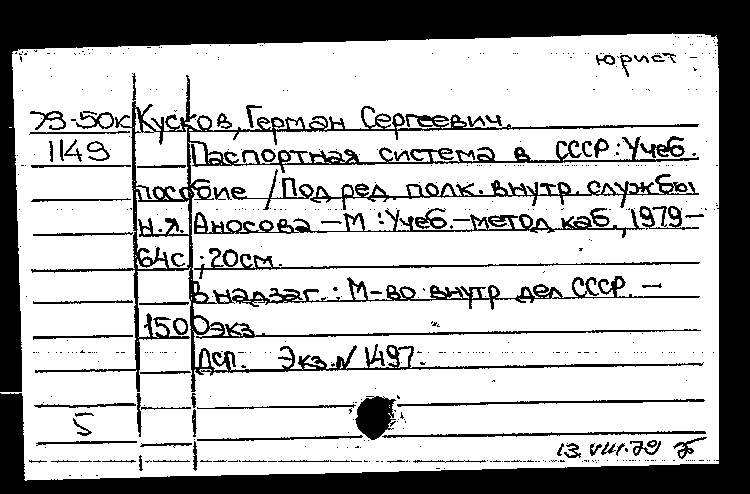 юрист
79-50к Кусков, Герман Сергеевич.
1149 Паспортная система в СССР: Учеб.
пособие / Под ред. полк. внутр. службы
Н.Я. Аносова – М: Учеб.-метод каб., 1979 –
64с. ; 20см.
В надзаг.: М-во внутр дел СССР. –
1500экз.
ДСП. Экз. N 1497.
5
13.VIII.79